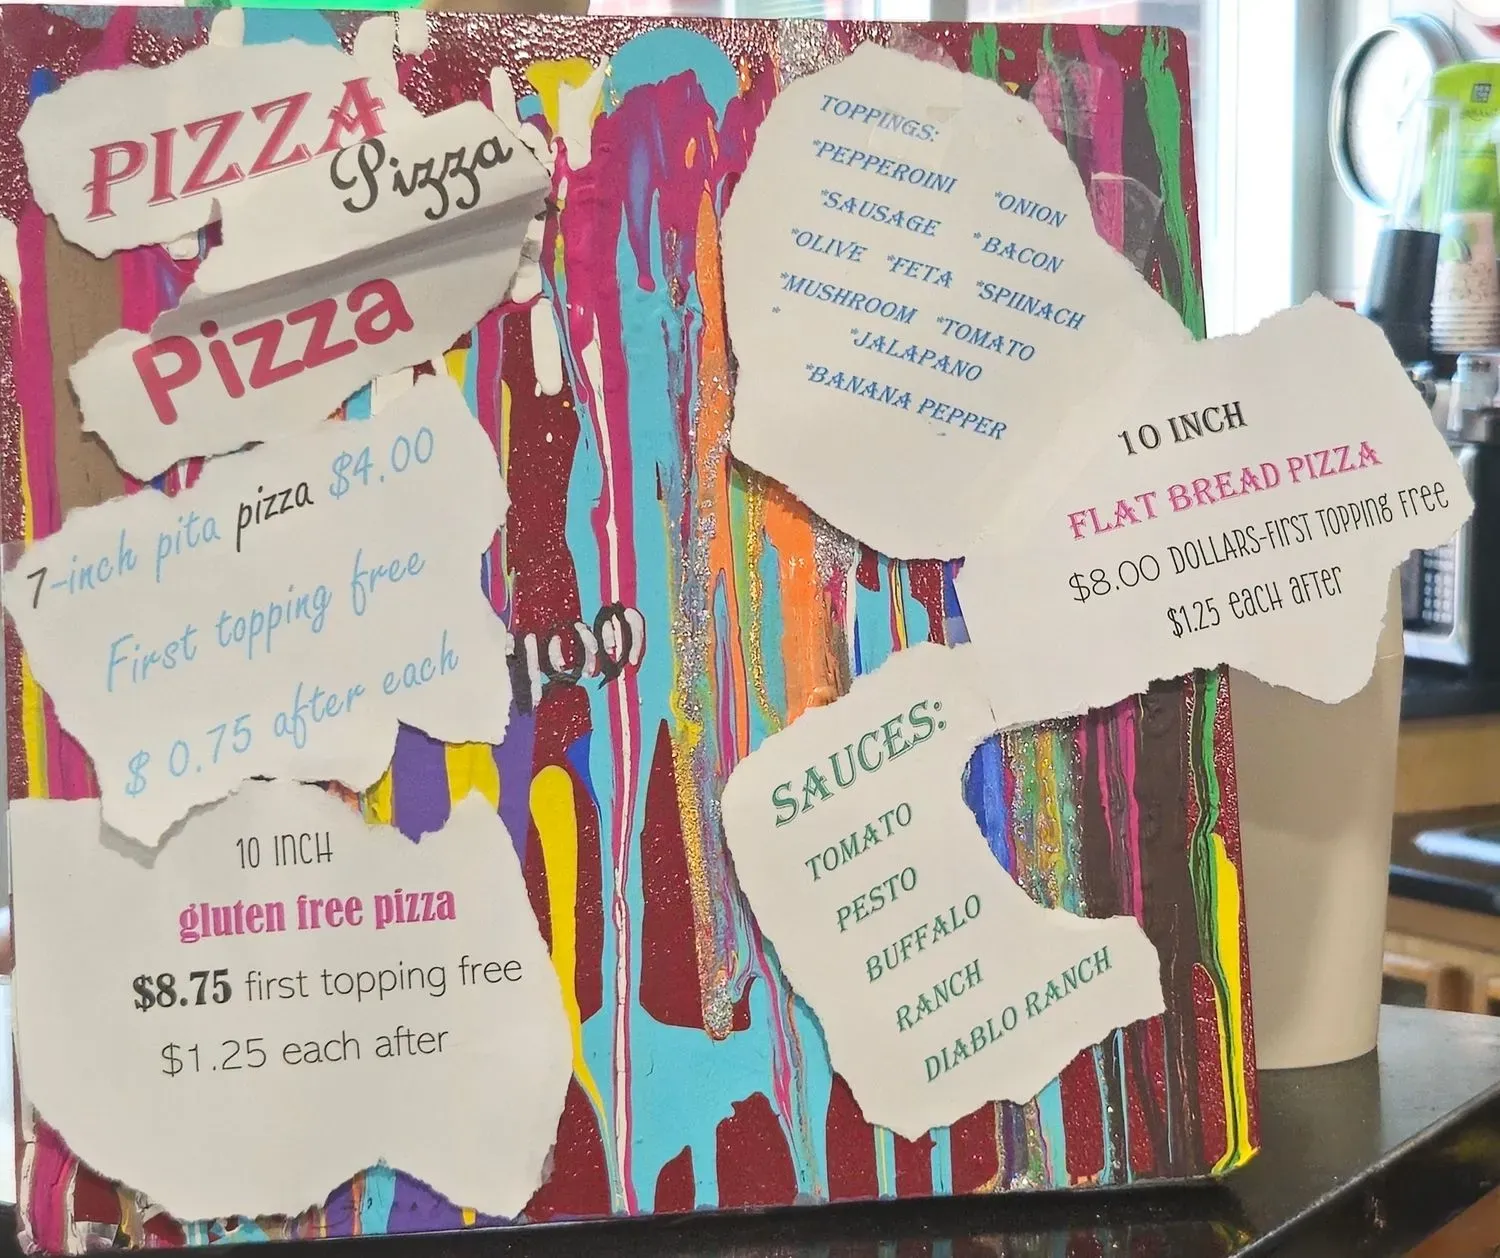 PIZZA
Pizza
Pizza
7-inch pita pizza $4.00
First topping free
$ 0.75 after each
10 INCH
gluten free pizza
$8.75 first topping free
$1.25 each after
TOPPINGS:
*PEPPEROINI *ONION
*SAUSAGE *BACON
*OLIVE *FETA *SPIINACH
*MUSHROOM *TOMATO
* *JALAPANO
*BANANA PEPPER
10 INCH
FLAT BREAD PIZZA
$8.00 DOLLARS-FIRST TOPPING FREE
$1.25 EACH AFTER
SAUCES:
TOMATO
PESTO
BUFFALO
RANCH
DIABLO RANCH